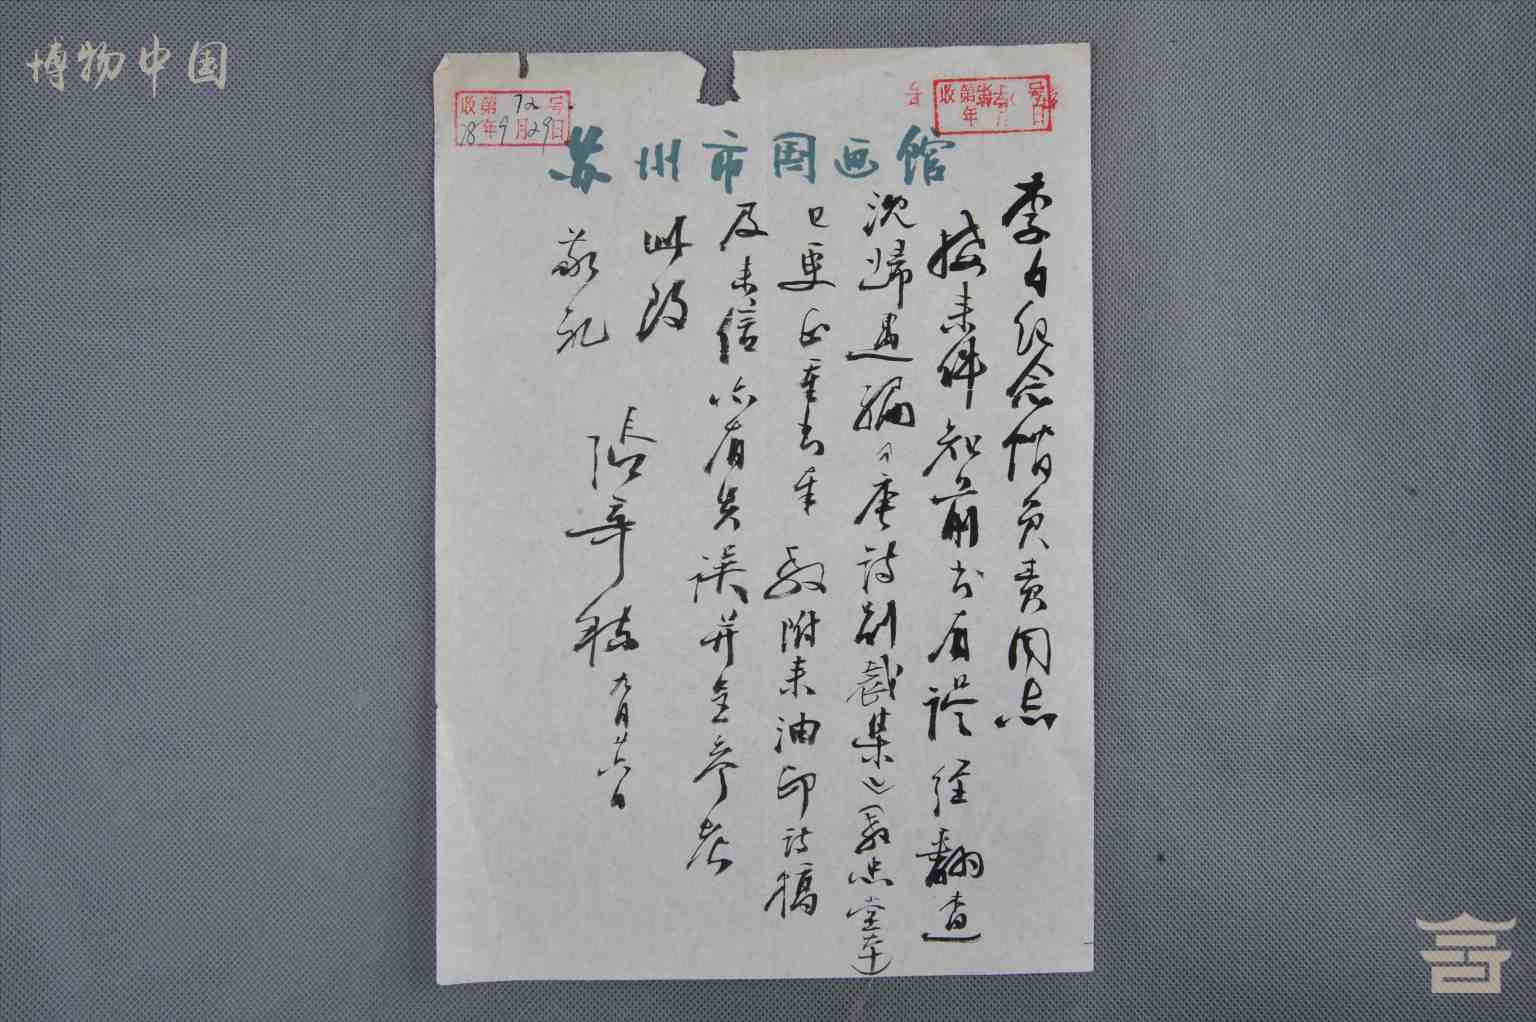 博物中国
收第72号
78年9月29日
收第 号
年 月 日
苏州市国画馆
李白纪念馆负责同志
接来件知前书有误经翻查
沈归愚编《唐诗别裁集》（教忠堂本）
已更正重书奉 教附来油印诗稿
及来信亦有失误并 参考
此致
敬礼
张辛稼 九月廿六日